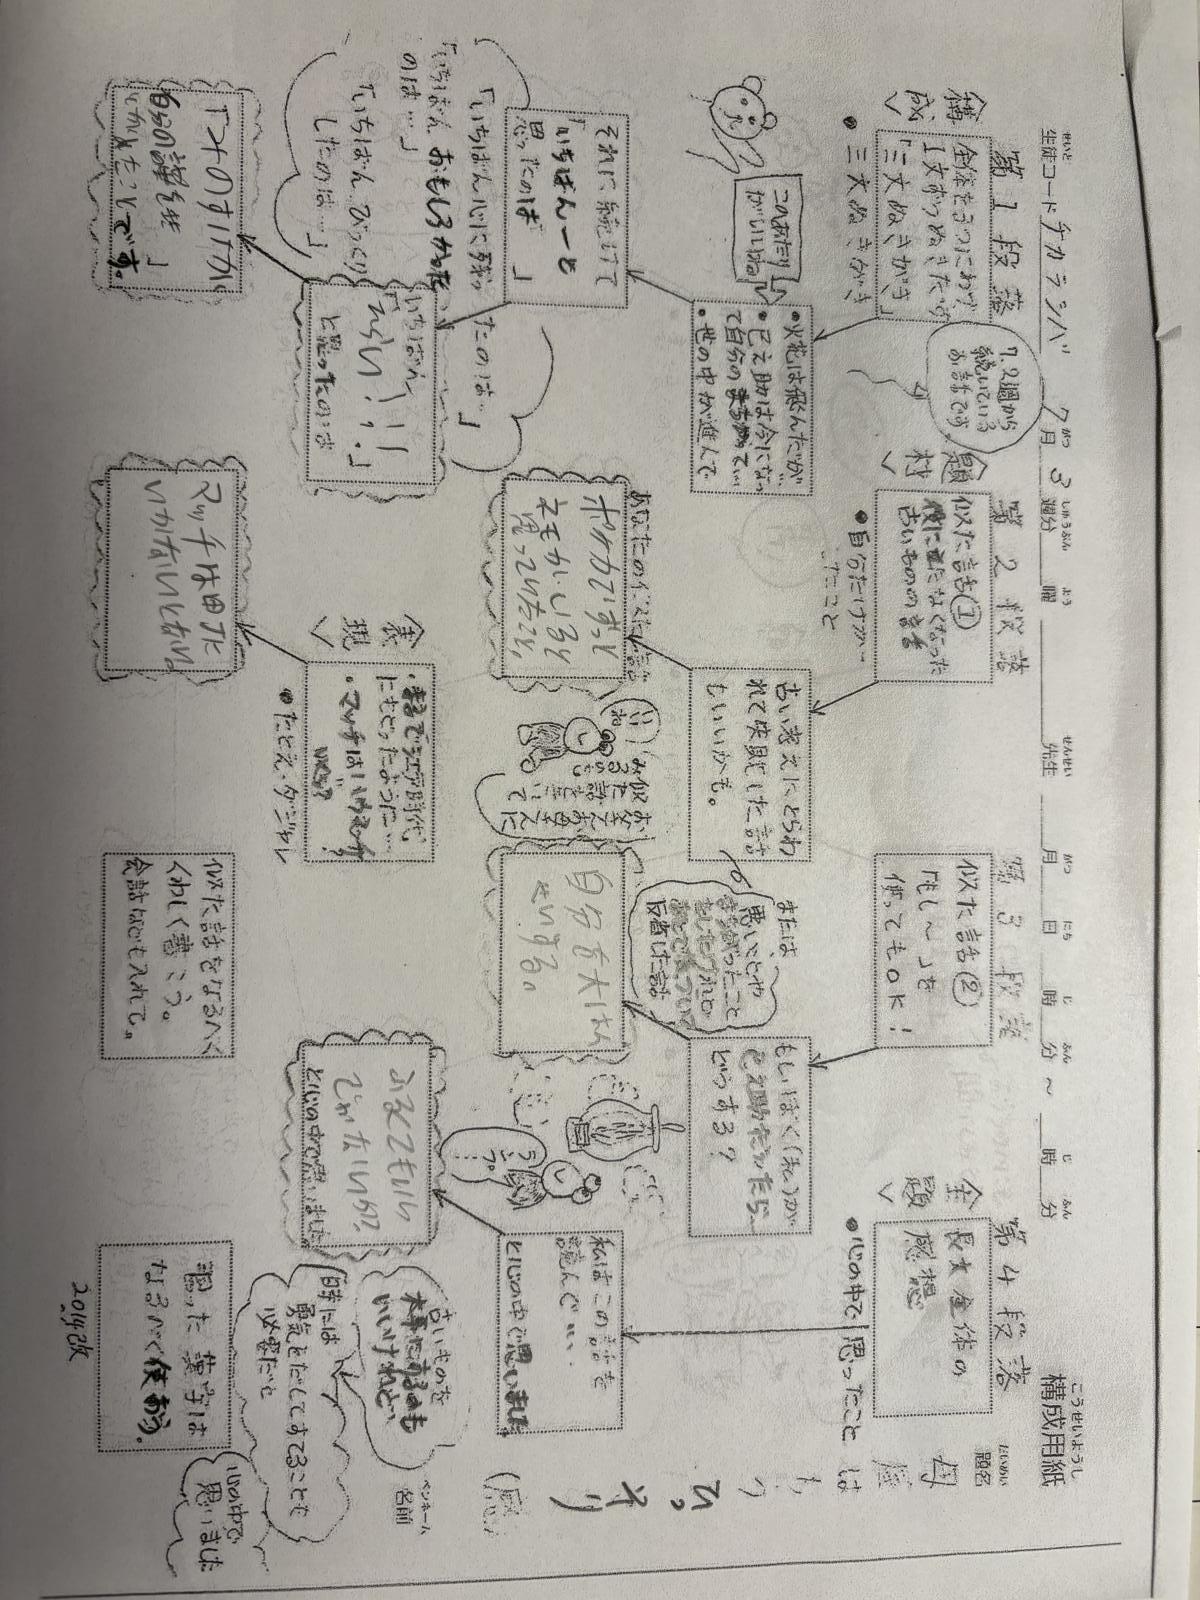 構成用紙
こうせいようし
題名
だいめい
母屋はもうひっそり(感)
ペンネーム
名前
生徒コード チカラシバ 7月3週分 曜 先生 月 日 時 分 ~ 時 分
せいと がつ しゅうぶん よう せんせい がつ にち じ ふん じ ふん
7.2週から
続いている
お話です
構成
第1段落
全体を3つにわけ、
1文ずつぬきだす
「三文ぬきがき」
・三文ぬきがき
このあたり
がいいね
・火花は飛んだが
・巳之助は今になっ
て自分のまちがい
・世の中が進んで
それに続けて
「いちばん〜と
思ったのは 」
「いちばん心に残っ
たのは…」
「いちばんおもしろかった
のは…」
「いちばんびっくり
したのは…」
いちばん
「えらい!!」
と思ったのは
からの課を
です。
題材
第2段落
似た話①
役に立たなくなった
古いものの話
・自分だけが…
たこと
古い考えにとらわ
れて失敗した話
もいいかも。
または、
悪いことや
反省した話
あなたの似た話
ポケカでずっと
思っていたこと。
いい
ね
お父さんお母さんに
似た話を聞いて
みるのも
表現
・まるで江戸時代
にもどったように…
・たとえ・ダジャレ
マッチは田に
いかないとね。
第3段落
似た話②
「もし〜」を
使ってもOK!
もしぼく(私)が
巳之助だったら…
どうする?
自分も大に
せいする。
似た話をなるべく
くわしく書こう。
会話なども入れて。
主題
第4段落
長文全体の
感想
・心の中で思ったこと
私はこの話を
読んで…
と心の中で思いました
う〜
と心の中で思いました
古いものを
大事にするのも
いいけれど、
時には
勇気をだしてすてることも
必要だと
習った漢字は
なるべく使おう。
心の中で
思いました
2019改